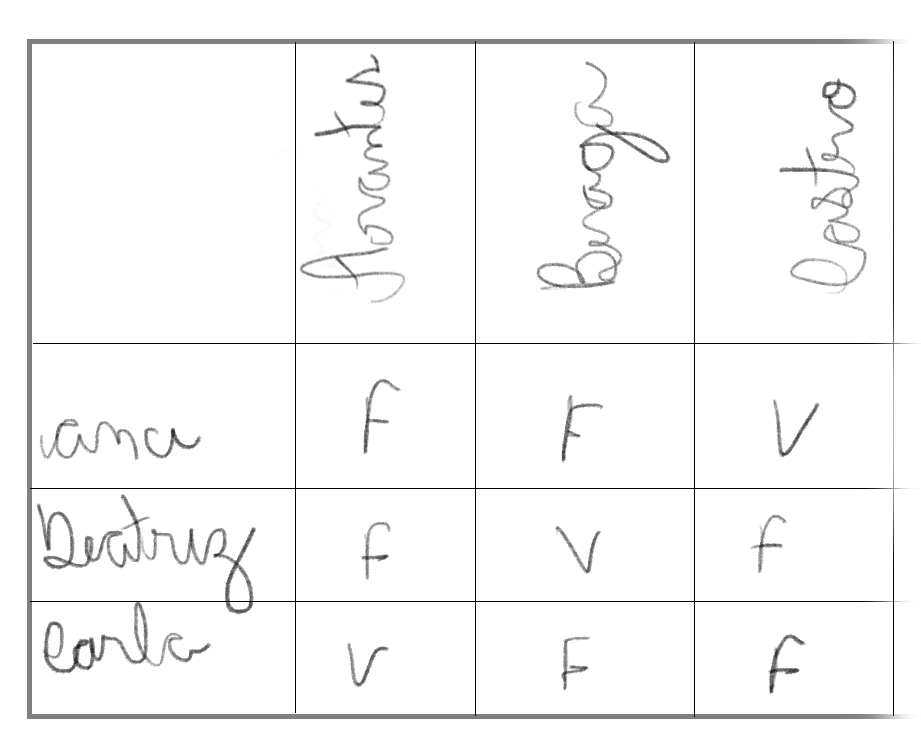 Arantes Braga Castro
ana F F V
Beatriz F V F
Carla V F F